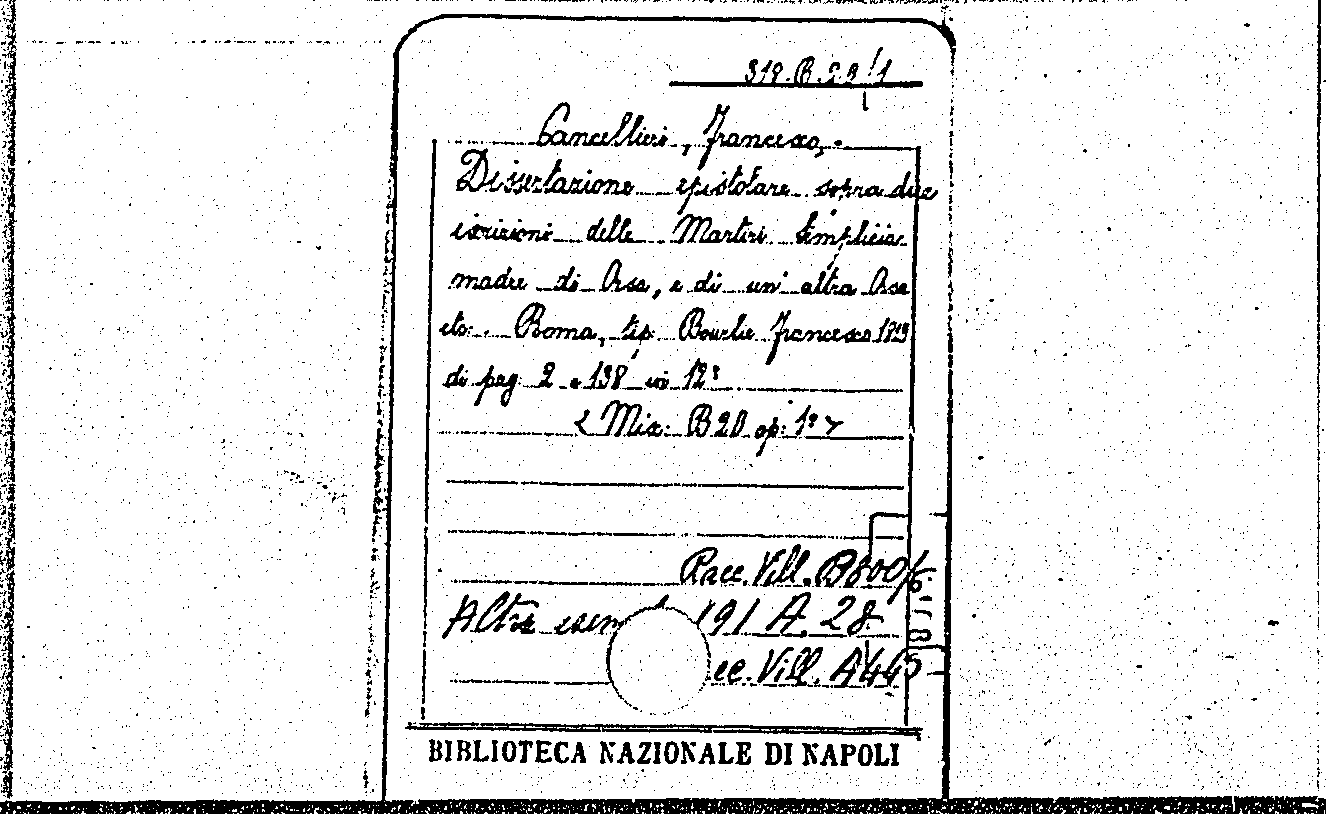 Cancellieri, Francesco,-
Dissertazione epistolare sopra due
iscrizioni delle Martiri Simplicia
madre di Orsa, e di un' altra Orsa
etc. Roma, tip. Bourlie Francesco 1819
di pag. 2 e 138 in 12°
< Mis. B20 op. 1° >
Racc. Vill. B600/6
Altro esem 191 A. 28
cc. Vill. A445
BIBLIOTECA NAZIONALE DI NAPOLI